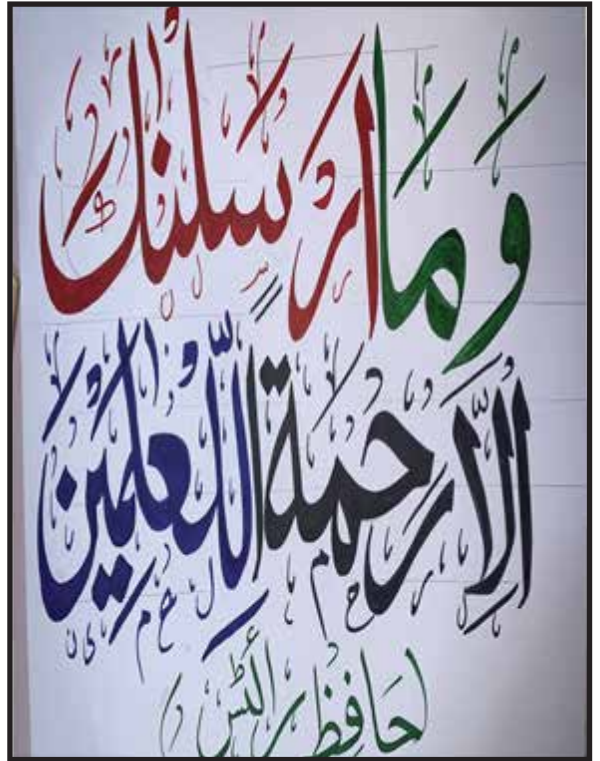 وَمَا اَرْسَلْنٰكَ
اِلَّا رَحْمَةً لِّلْعٰلَمِيْنَ
(حافظ آرٹس)